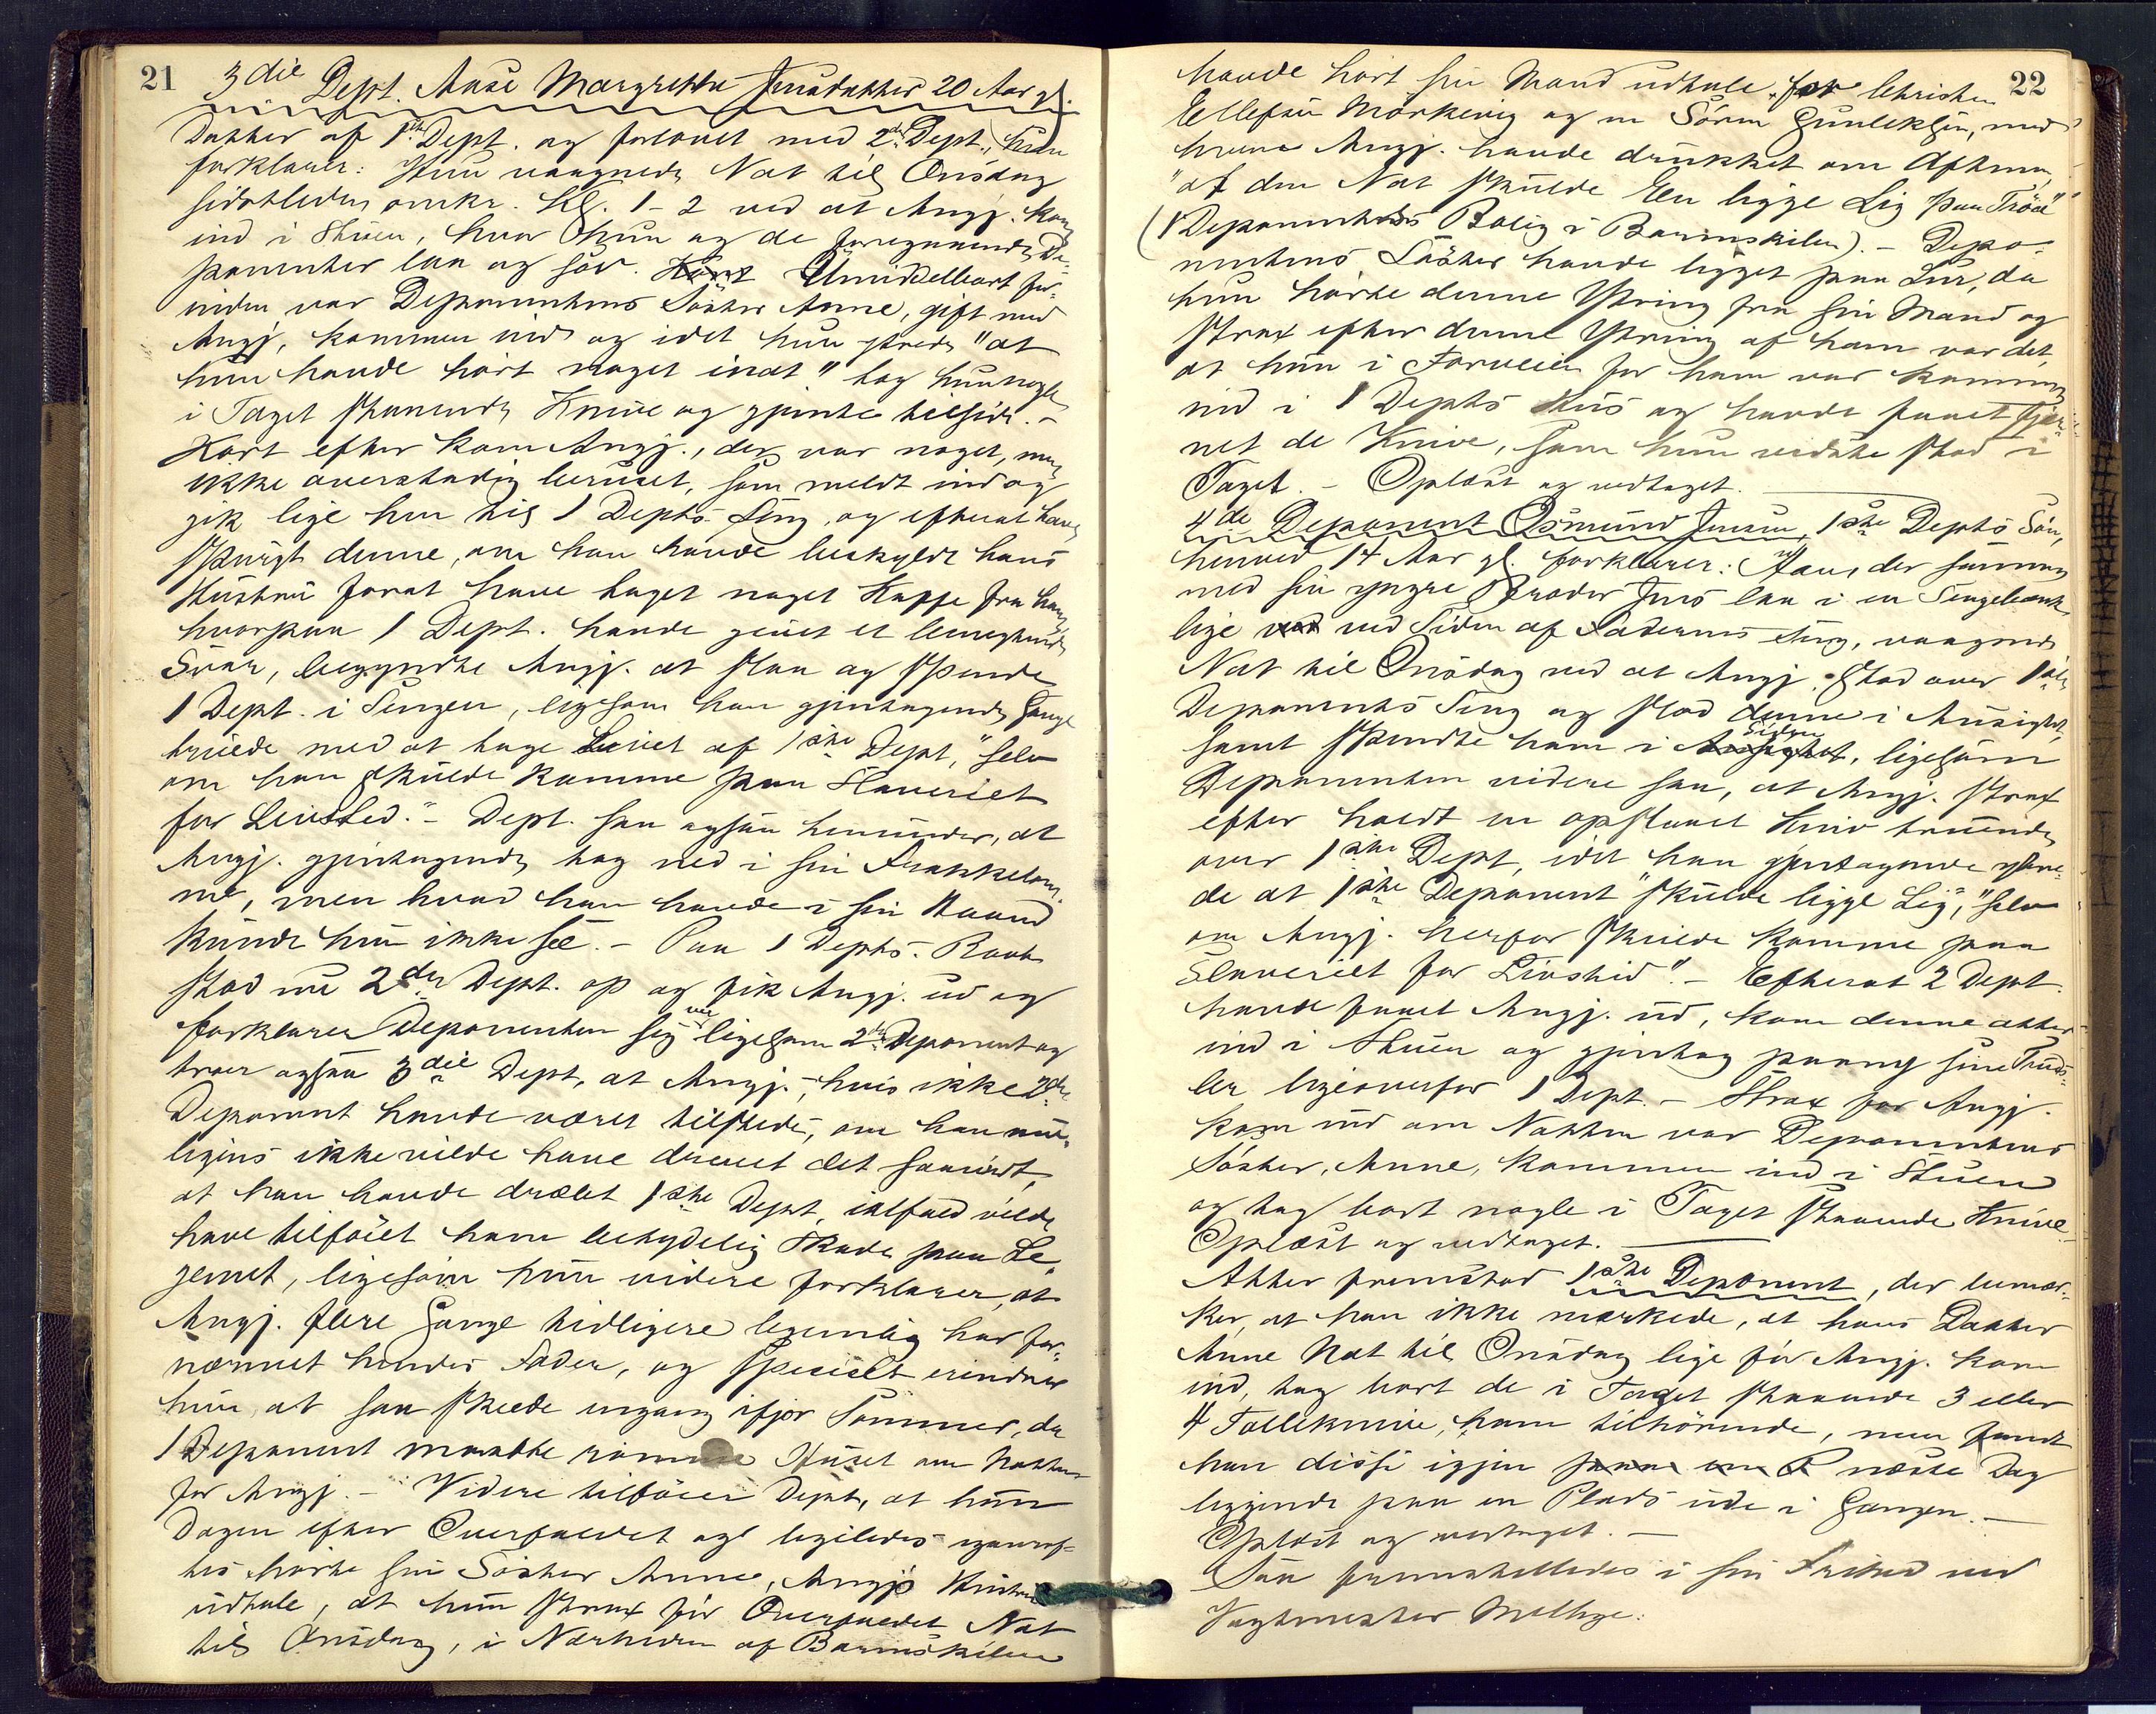 21
3die Dept. Anne Margrethe Jensdatter 20 Aar gl.
Datter af 1ste Dept. og forlovet med 2den Dept., hun
forklarer: Hun vaagnede Nat til Onsdag
sidstleden omkr. Kl. 1-2 ved at Angj. kom
ind i Stuen, hvor hun og de foregaaende De-
ponenter laa og sov. Umiddelbart for-
inden var Deponentens Søster Anne, gift med
Angj, kommen ind og idet hun ytrede "at
hun havde hørt noget inat" tog hun nogle
i Taget staaende Knive og gjemte tilside. -
Kort efter kom Angj., der var noget, men
ikke overstadig beruset, som meldt ind og
gik lige hen til 1 Depts Seng, og efterat have
spurgt denne, om han havde beskyldt hans
Hustru forat have taget noget Kaffe fra ham
hvorpaa 1 Dept. havde givet et benegtende
Svar, begyndte Angj. at slaa og spende
1 Dept. i Sengen, ligesom han gjentagende Gange
truede med at tage Livet af 1ste Dept, "selv
om han skulde komme paa Slaveriet
for Livstid." - Dept. saa ogsaa herunder, at
Angj. gjentagende tog ned i sin Frakkelom-
me, men hvad han havde i sin Haand
kunde hun ikke see. - Paa 1 Depts. Raab
stod nu 2den Dept. op og fik Angj. ud og
forklarer Deponenten sig nu ligesom 2den Deponent og
troer ogsaa 3die Dept, at Angj. - hvis ikke 2den
Deponent havde været tilstede, om han mu-
ligens ikke vilde have drevet det saavidt,
at han havde dræbt 1ste Dept, ialfald vilde
have tilføiet ham betydelig Skade paa Le-
gemet, ligesom hun videre forklarer, at
Angj. flere Gange tidligere legemlig har for-
nærmet hendes Fader, og specielt erindrer
hun, at saa skede engang ifjor Sommer, da
1 Deponent maatte rømme Huset om Natten
for Angj. - Videre tilføier Dept, at hun
Dagen efter Overfaldet
hørte sin Søster Anne, Angjs Hustru
udtale, at hun strax før Overfaldet Nat
til Onsdag, i Nærheden af Barmskilen
22
havde hørt sin Mand udtale for Christen
Ellefsen Mørkevig og en Søren Gunleksen, med
hvem Angj. havde drukket om Aftenen,
"at den Nat skulde Een ligge Lig paa Trøe"
(1 Deponentens Bolig i Barmskilen). - Depo-
nentens Søster havde ligget paa Lur, da
hun hørte denne Ytring fra sin Mand og
strax efter denne Ytring af ham var det,
at hun i Forveien for ham var kommen
ind i 1 Depts Hus og havde faaet fjer-
net de Knive, som hun vidste stod i
Taget. - Oplæst og vedtaget.
4de Deponent Osmund Jensen, 1ste Depts Søn,
henved 14 Aar gl. forklarer: Han, der sammen
med sin yngre Broder Jens laa i en Sengebænk
lige ved Siden af Faderens Seng, vaagnede
Nat til Onsdag ved at Angj. stod over 1ste
Deponents Seng og slog denne i Ansigtet,
samt spendte ham i Siden, ligesom
Deponenten videre saa, at Angj. strax
efter holdt en opslaaet Kniv truende
over 1ste Dept, idet han gjentagende ytre-
de at 1ste Deponent "skulde ligge Lig", "selv
om Angj. herfor skulde komme paa
Slaveriet for Livstid". - Efterat 2 Dept.
havde faaet Angj. ud, kom denne atter
ind i Stuen og gjentog paany sine Trud-
ler ligeoverfor 1 Dept. - Strax før Angj.
kom ind om Natten var Deponentens
Søster, Anne, kommen ind i Stuen
og tog bort nogle i Taget staaende Knive.
Oplæst og vedtaget.
Atter fremstod 1ste Deponent, der bemær-
ker, at han ikke mærkede, at hans Datter
Anne Nat til Onsdag lige før Angj. kom
ind, tog bort de i Taget staaende 3 eller
4 Tolleknive, ham tilhørende, men fandt
han disse igjen næste Dag
liggende paa en Plads ude i Gangen. -
Oplæst og vedtaget. -
Saa fremstilledes i sin Frihed ved
Vagtmester